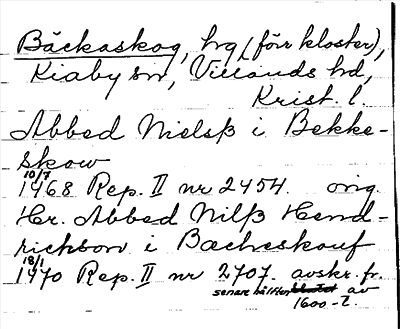 Bäckaskog, hg (förr kloster),
Kiaby sn, Villands hd,
Krist. l.
Abbed Nielsß i Bekke-
skow
10/7
1468 Rep. II nr 2454. orig.
Hr. Abbed Nilß Hend-
rickson i Bæcheskouf
18/1
1470 Rep. II nr 2707. avskr. fr.
senare hälften av
1600-t.